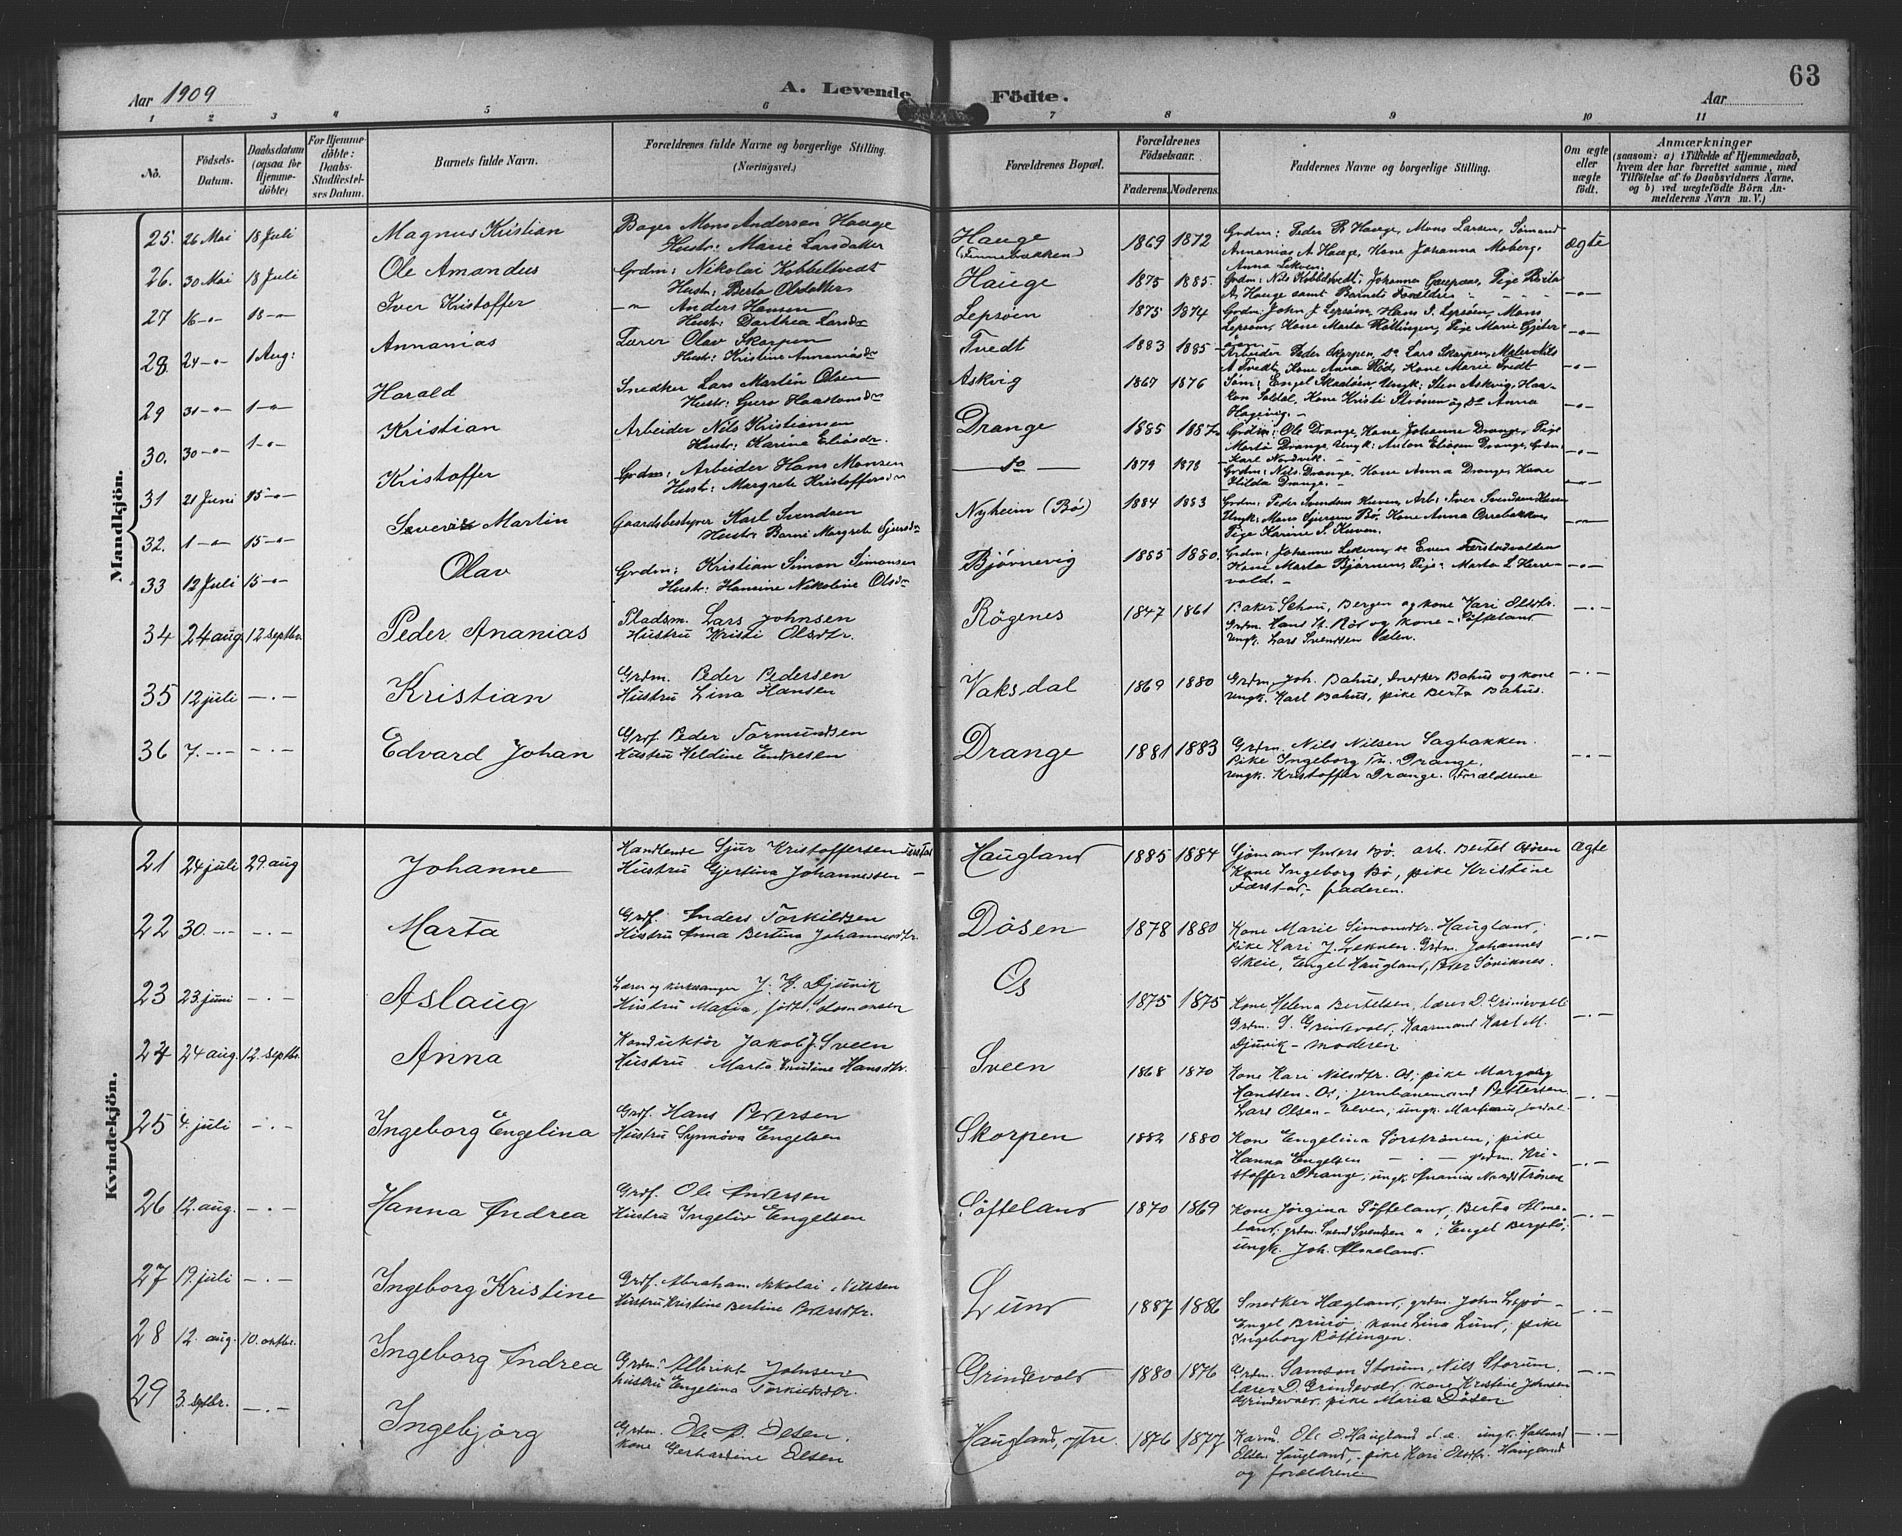 63
Aar 1909
A. Levende Födte.
Aar
1 2 3 4 5 6 7 8 9 10 11
No.
Födsels-Datum.
Daabsdatum (ogsaa for Hjemme-döbte)
For Hjemme-döbte: Daabs-Stadfæstel-ses Datum.
Barnets fulde Navn.
Forældrenes fulde Navne og borgerlige Stilling. (Næringsvei.)
Forældrenes Bopæl.
Forældrenes Födselsaar.
Faderens. Moderens.
Faddernes Navne og borgerlige Stilling.
Om ægte eller uægte födt.
Anmærkninger
(saasom: a) i Tilfælde af Hjemmedaab,
hvem der har forrettet samme, med
Tilföielse af to Daabsvidners Navne.
og b) ved uægtefödte Börn An-
melderens Navn m. V.)
Mandkjön.
25. 26 Mai 18 Juli Magnus Kristian Bager Mons Andersen Hauge Hauge 1869 1872 Grdm: Peder R. Hauge, Mons Larsen, Simand ægte
Hustr: Marie Larsdatter Ananias A Hauge, Kone Johanna Moberg.
Anna Lekven.
26. 30 Mai 18 Juli Ole Amandus Grdm: Nikolai Kobbeltvedt Hauge 1875 1885 Grdm: Nils Kobbeltvedt, Johannes Pige Berta —"—
Hust: Berta Olsdatter A. Hauge samt Barnets Forældre
27 16 —"— 18 —"— Iver Kristoffer —"— Anders Hansen Lepsöen 1875 1874 Grdm: John J Lepsöen, Hans J. Lepsöen, Mons —"—
Hust: Dorthea Larsdr Lepsöen, Kone Marta Röttingen, Pige Marie
28 24 —"— 1 Aug: Annanias Lærer Olav Skorpen Tvedt 1883 1885 Arbeider Peder Skorpen, do Lars Skorpen, Nils —"—
Hust: Kristine Annaniasdr A Tvedt, Kone Anna Röd, Kone Marie Tvedt
29 31 —"— 1 —"— Harald Snedker Lars Martin Olsen Askvig 1867 1876 Söm: Engel Skadöen, Ungk: Sten Askvig, Haa- —"—
Hust: Guro Haavorsdr kon Soldal, Kone Kristi Strönen og do Anna
Hagevig. —
30. 30 —"— 1 —"— Kristian Arbeider Nils Kristiansen Drange 1885 1887 Grdm: Ole Drange, Kone Johanne Drange, Pige —"—
Hust: Karine Eliasdr. Marta Drange, Ungk: Anton Eliasen Drange, Grdm
Karl Nordvik. —
31 21 Juni 15 —"— Kristoffer Grdm: Arbeider Hans Monsen — do — 1879 1878 Grdm: Nils Drange, Kone Anna Drange, Kone —"—
Hust: Margrete Kristoffersdr Hilda Drange. —
32. 1 —"— 15 —"— Severin Martin Gaardsbestyrer Karl Svendsen Nyheim (Bö) 1884 1883 Grdm: Peder Svendsen Kuven, Arb: Iver Svendsen Kuven —"—
Hustr Barni Margrete Sjursdr Ungk: Mons Sjursen Bö, Kone Anna Orrebakken,
Pige Karine S. Kuven.
33 12 Juli 15 —"— Olav Grdm: Kristian Simon Simonsen Bjørnevig 1885 1880. Grdm: Johannes Lekven, do Even —"—
Hustr: Hansine Nikoline Olsdr Kone Marta Bjørnen, Pige: Marta L Herre-
vold. —
34 24 aug 12 septbr. Peder Ananias Pladsm. Lars Johnsen Røgenes 1847 1861 Baker Schou, Bergen og kone Kari Olsdtr. —"—
Hustru Kristi Olsdtr. Grdm. Hans H. Rör og kone — Söfteland
ungk. Lars Svendsen Valen.
35 12 juli —"— Kristian Grdm. Peder Pedersen Vaksdal 1869 1880 Grdm. Joh. Bahus, Snedker Bahus og kone —"—
Hustru Lina Hansen ungk. Karl Bahus, pike Berta Bahus.
36 7. —"— —"— Edvard Johan Grdf. Peder Tormundsen Drange 1881 1883 Grdm. Nils Nilsen Sagbakken. —"—
Hustru Heldine Endresen Pike Ingeborg Drange,
ungk. Kristoffer Drange. Forældrene
Kvindekjön.
21 24 juli 29 aug Johanne Handlende Sjur Kristoffersen Haugland 1885 1884 Sjömand Anders Bö. arb. Bertel Osören ægte
Hustru Gjertina Johannessen — Kone Ingeborg Bö, pike Kristine
Færstad, faderen.
22 30. —"— —"— Marta Grdf. Anders Torkildsen Døsen 1878 1880 Kone Marie Simonsdtr. Haugland, —"—
Hustru Anna Bertina Johannesdtr. pike Kari J. Leknen. Grdm. Johannes
Skeie, Engel Haugland, Peder Søviknes.
23 23. juni —"— Aslaug Lærer og kirkesanger J. K. Djuvik Os 1875 1875 Kone Helena Bertelsen, lærer D. Grindevoll —"—
Hustru Maria, født Lomonsen Grdm. D. Grindevold, Kaarmand Karl M.
Djuvik — moderen
24 24 aug. 12. septbr. Anna Konduktør Jakob J. Sveen Sveen 1868 1870 Kone Kari Nilsdtr. Os, pike Margreg —"—
Hustru Marta Gundine Hansdtr. Hanssen — Os, jernbanemand Pettersen
Lars Olsen — Elven, ungk.
25 4. juli —"— Ingeborg Engelina Grdf. Hans Pedersen Skorpen 1882 1880 Kone Engelina Sørstrønen, pike —"—
Hustru Synnøva Engelsen Hanna Engelsen —"— grdm. Kri-
stoffer Drange, ungk. Ananias
26 12. aug. —"— Hanna Andrea Grdf. Ole Andersen Söfteland 1870 1869 Kone Jørgina Söfteland, Berta Alme- —"—
Hustru Ingeliv Engelsen land, grdm. Svend Svendsen " , Engel Bergstö,
ungk. Joh. Almeland
27 19. juli —"— Ingeborg Kristine Grdf. Abraham Nikolai Nilsen Lund 1887 1886 Snedker Hægland, grdm. John Lepsö — —"—
Hustru Kristine Bertine Pedersdtr. Engel Brurö, kone Lina Lund, pike
Ingeborg Röttingen.
28 12. aug. 10. oktbr. Ingeborg Andrea Grdm. Albrikt Johnsen Grindevold 1880 1876 Grdm. Samson Storum, Nils Storum, —"—
hustru Engelina Torkildsdtr. lærer D. Grindevold, kone Kristine Johnsen
Grindevold, pike Maria Døsen
29 3. septbr. —"— Ingebjörg Grdm. Ole A. Olsen. Haugland, ytre 1876 1877 Kaarm. Ole O. Haugland d. e. ungk. —"—
kone Gerhardine Olsen Olsen Haugland, pike Kari Olsdtr. Haugland
og forældrene